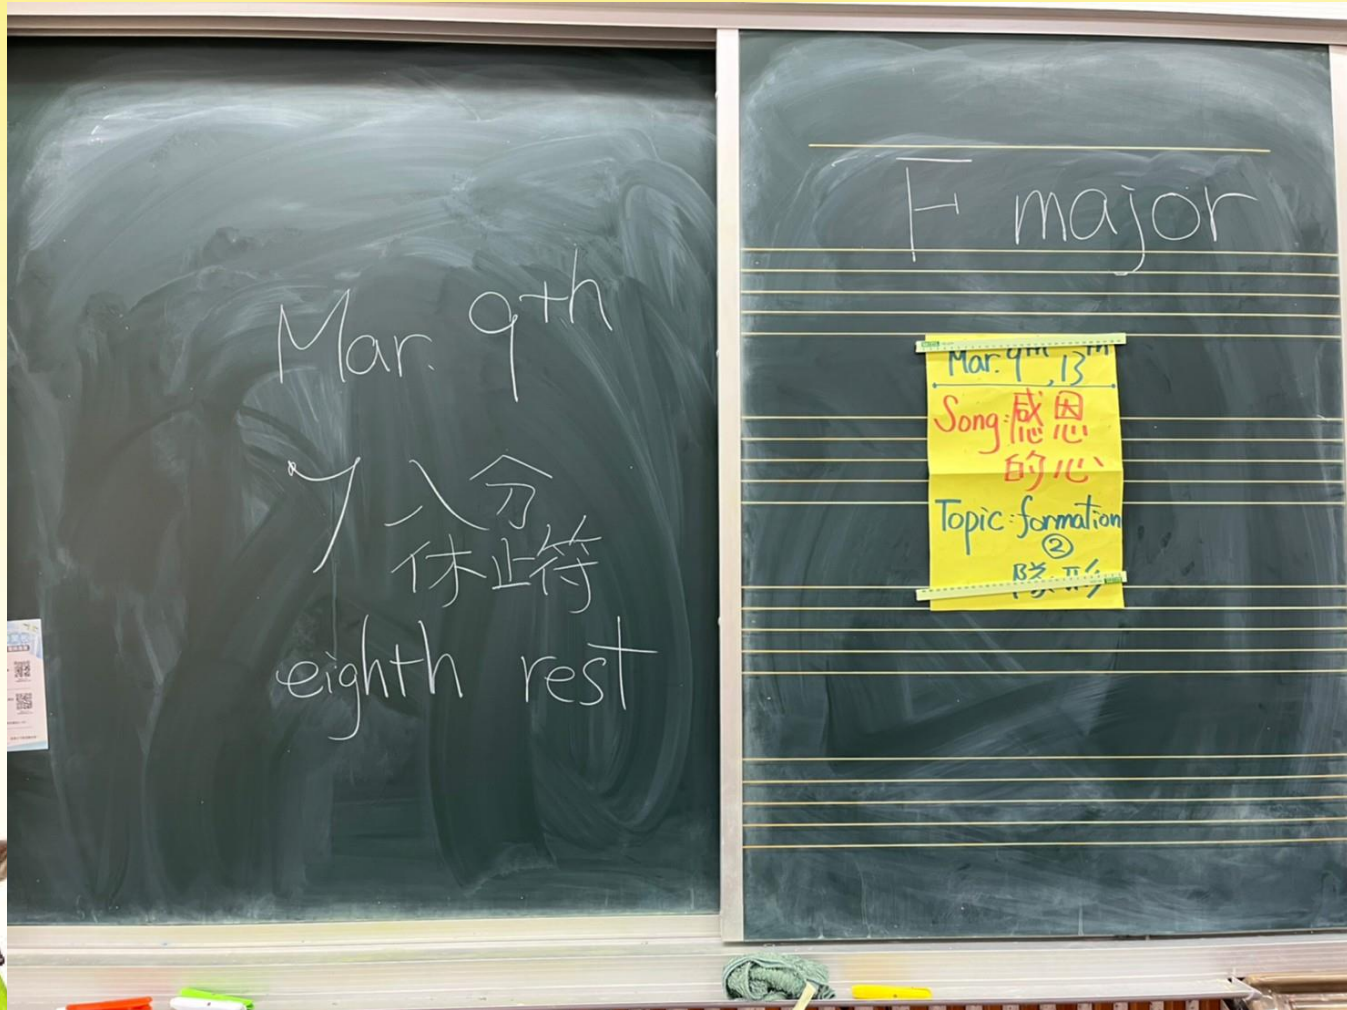 Mar. 9th
八分
休止符
eighth rest
F major
Mar. 9th, 13th
Song:感恩
的心
Topic:formation
②
隊形